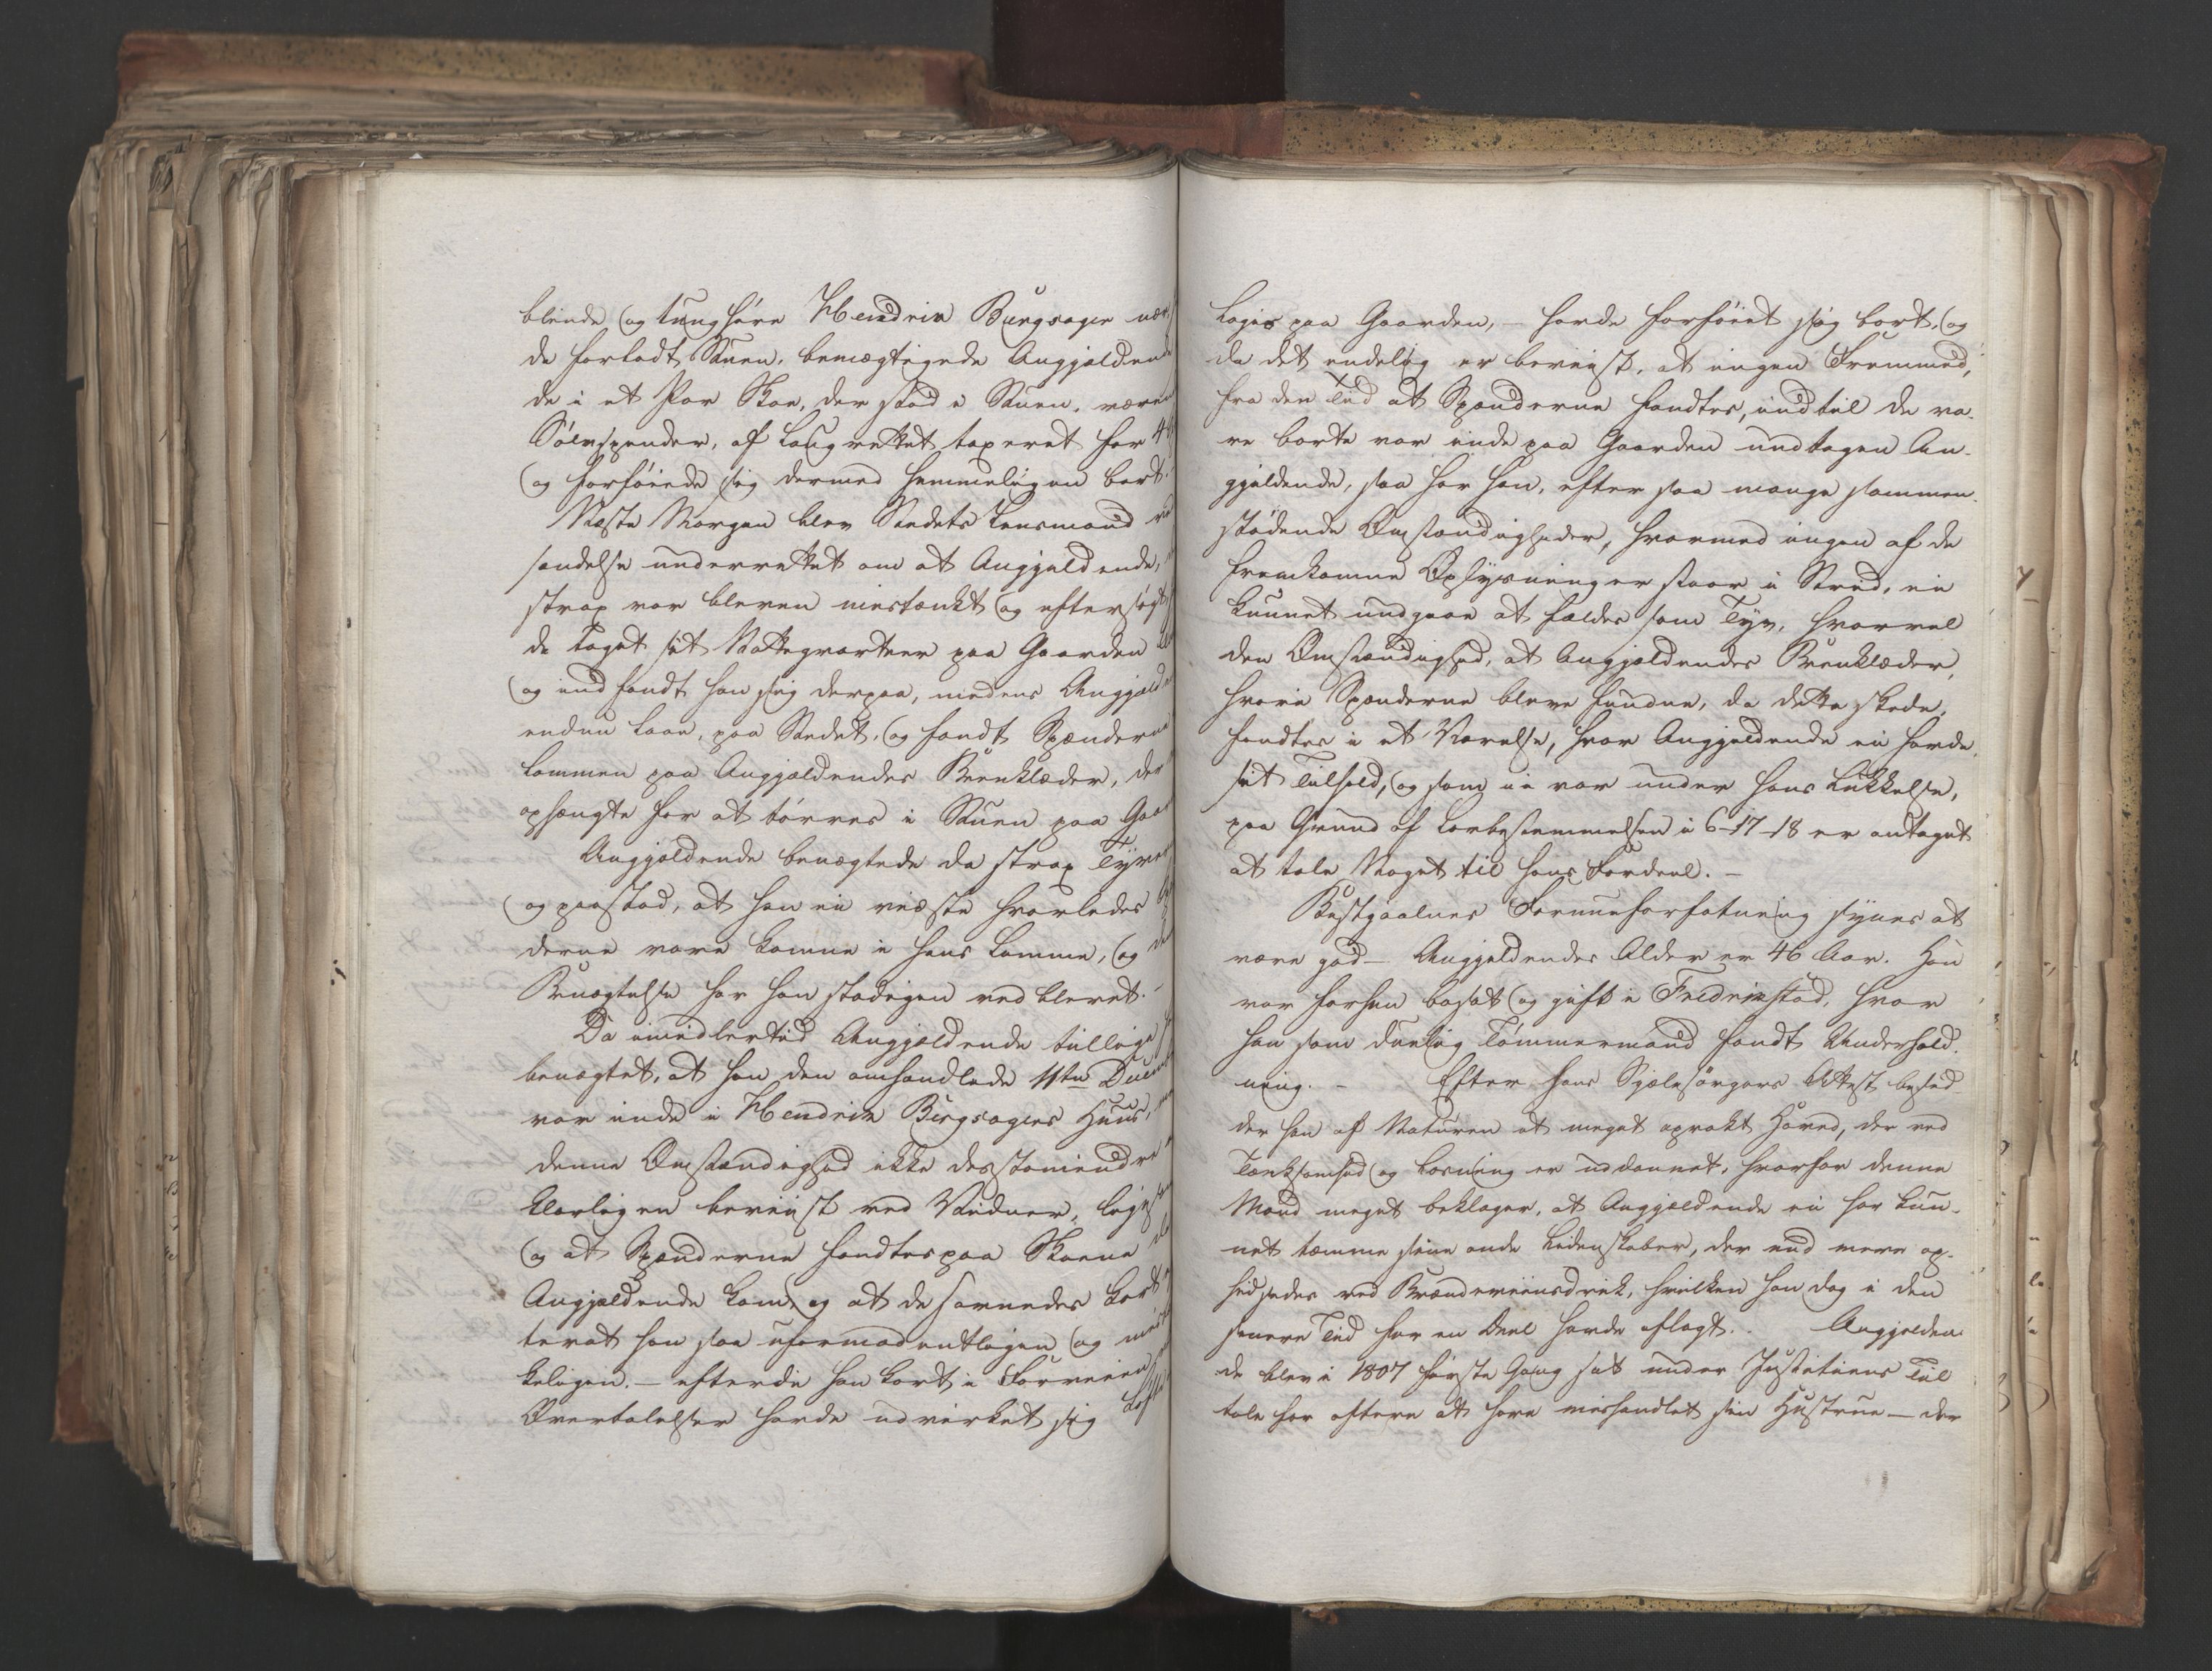 blinde og tunghøre Hendrik Burgsager nær
de forladt Stuen, bemægtigede Angjælden
de i et Par Skoe, der stod i Stuen, være
Sølvspender, af Laugrettet taxeret for 4
og forføiede sig dermed hemmeligen bort.
Næste Morgen blev Stedets Lensmand ved
sendelse underrettet om at Angjeldende,
strax var bleven mistænkt og eftersøgt
de taget sit Nattegvarteer paa Gaarden
og indfandt han sig derpaa, medens Angjælde
endnu laae, paa Stedet, og fandt Spænderne
Lommen paa Angjældendes Beenklæder, der
ophængte for at tørres i Stuen paa Gaar
Angjældende benægtede da strax Tyve
og paastod, at han ei vidste hvorledes
derne vare komne i hans Lomme, og
Benægtelse har han stadigen vedblevet. -
Da imidlertid Angjældende tillige
benægtet, at han den omhandlede 11te
var inde i Hendrik Birgsagers Huus,
denne Omstændighed ikke destomindre
klarligen beviist ved Vidner,
og at Spænderne fandtes paa Skoene
Angjældende kom, og at de savnedes kort
terat han saa uformodentligen og
keligen. - efterdi han kort i Forveien
Overtalelser havde udvirket sig
Logis paa Gaarden, - havde forføiet sig bort, og
da det endelig er beviist, at ingen Fremmed,
fra den Tid at Spænderne fandtes, indtil de va-
re borte var inde paa Gaarden undtagen An-
gjeldende, saa har han, efter saa mange sammen-
stødende Omstændigheder, hvormed ingen af de
fremkomne Oplysninger staar i Strid, ei
kunnet undgaae at fældes som Tyv, hvorvel
den Omstændighed, at Angjældendes Beenklæder,
hvori Spænderne bleve fundne, da dette skede,
fandtes i et Værelse, hvor Angjeldende ei havde
sit Tilhold, og som ei var under hans Lukkelse,
paa Grund af Lovbestemmelsen i 6-17-18 er antaget
at tale Noget til hans Fordeel. -
Bestjaalnes Formueforfatning synes at
være god - Angjeldendes Alder er 46 Aar. Han
var forhen bosat og gift i Fredrikstad, hvor
han som duelig Tømmermand fandt Underhold-
ning. - Efter hans Sjælesørgers Attest besid-
der han af Naturen et meget oprakt Hoved, der ved
Tænksomhed og Læsning er uddannet, hvorfor denne
Mand meget beklager, at Angjældende ei har kun-
net tæmme sine onde Lidenskaber, der end mere op-
hidsedes ved Brændeviinsdrik, hvilken han dog i den
senere Tid for en Deel havde aflagt. Angjelden-
de blev i 1807 første Gang sat under Justitiens Til
tale for oftere at have mishandlet sin Hustrue - der